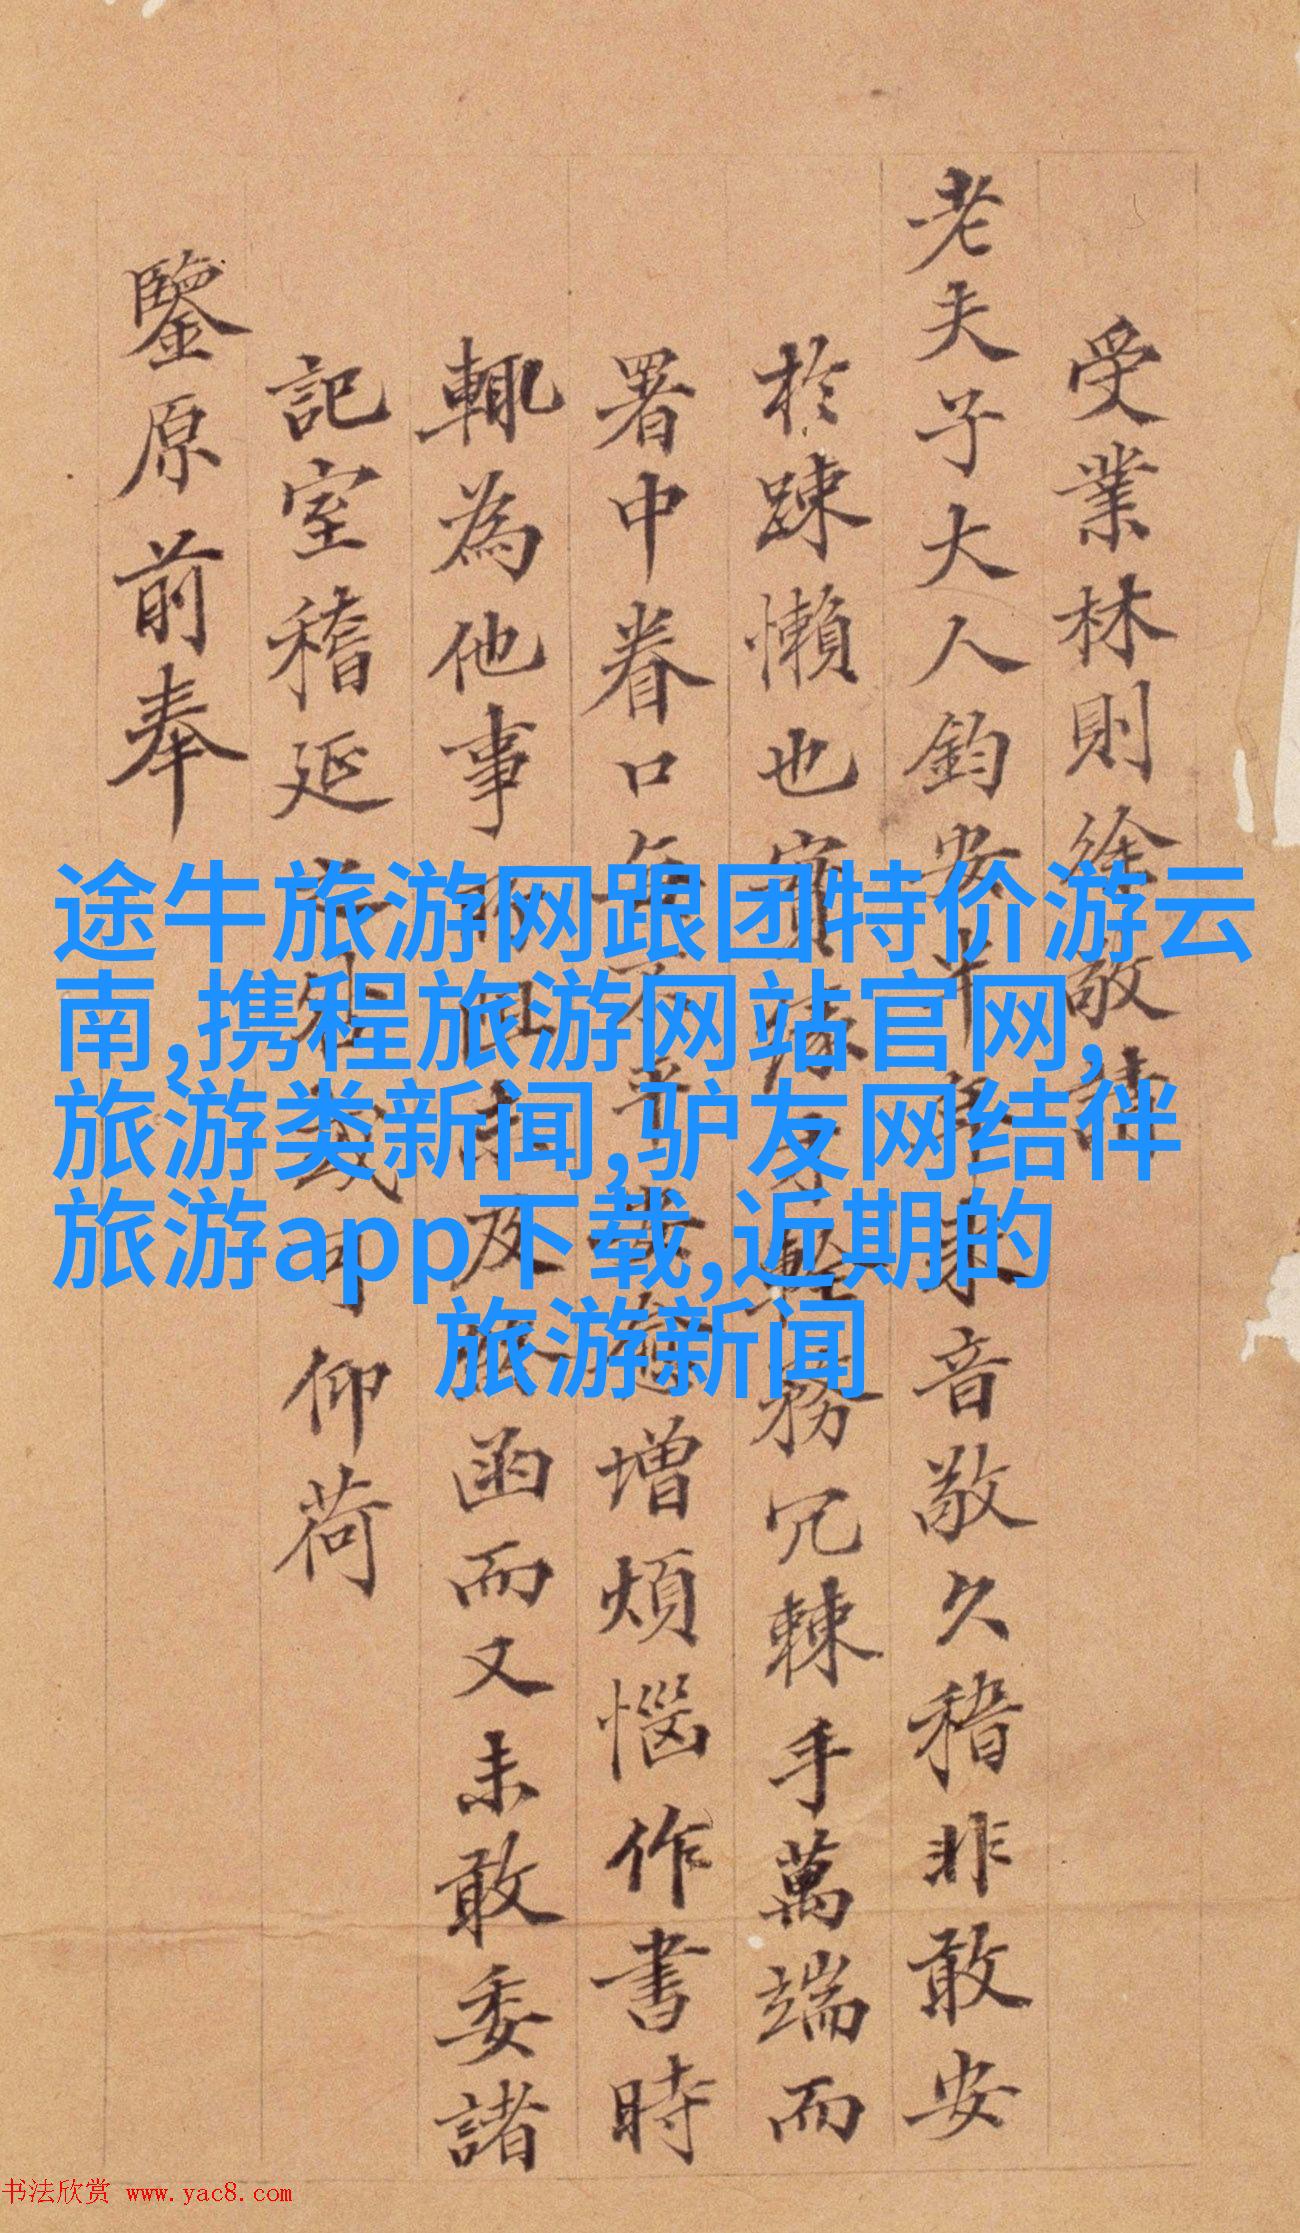 受業林則徐敬請
老夫子大人鈞安半年來音敬久稽非敢安
於踈懶也實緣
務冗棘手萬端而
署中眷口
增煩惱作書時
輒為他事
函而又未敢委諸
記室稽延
仰荷
鑒原前奉
途牛旅游网跟团特价游云
南,携程旅游网站官网,
旅游类新闻,驴友网结伴
旅游app下载,近期的
旅游新闻
书法欣赏 www.yac8.com